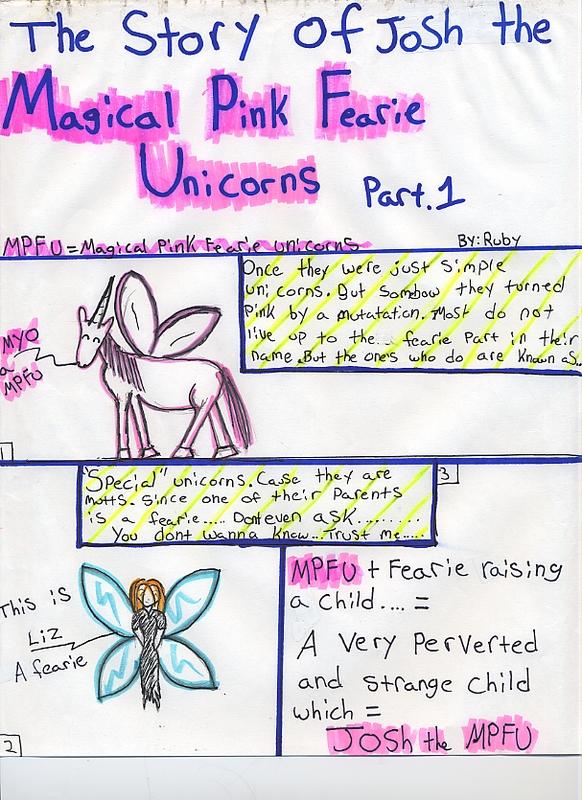 The Story Of Josh the
Magical Pink Fearie
Unicorns Part.1
MPFU=Magical Pink Fearie Unicorns
By:Ruby
Once they were just simple
unicorns. But somhow they turned
Pink by a mutatation. Most do not
live up to the... fearie Part in their
name. But the ones who do are Known as..
MYO
a
MPFU
1
"Special" unicorns. Cause they are
mutts. Since one of their Parents
is a fearie..... Dont even ask.........
You dont wanna know... Trust me.....
This is
Liz
A fearie
2
3
MPFU + Fearie raising
a child.... =
A Very Perverted
and strange child
which =
JOSH the MPFU